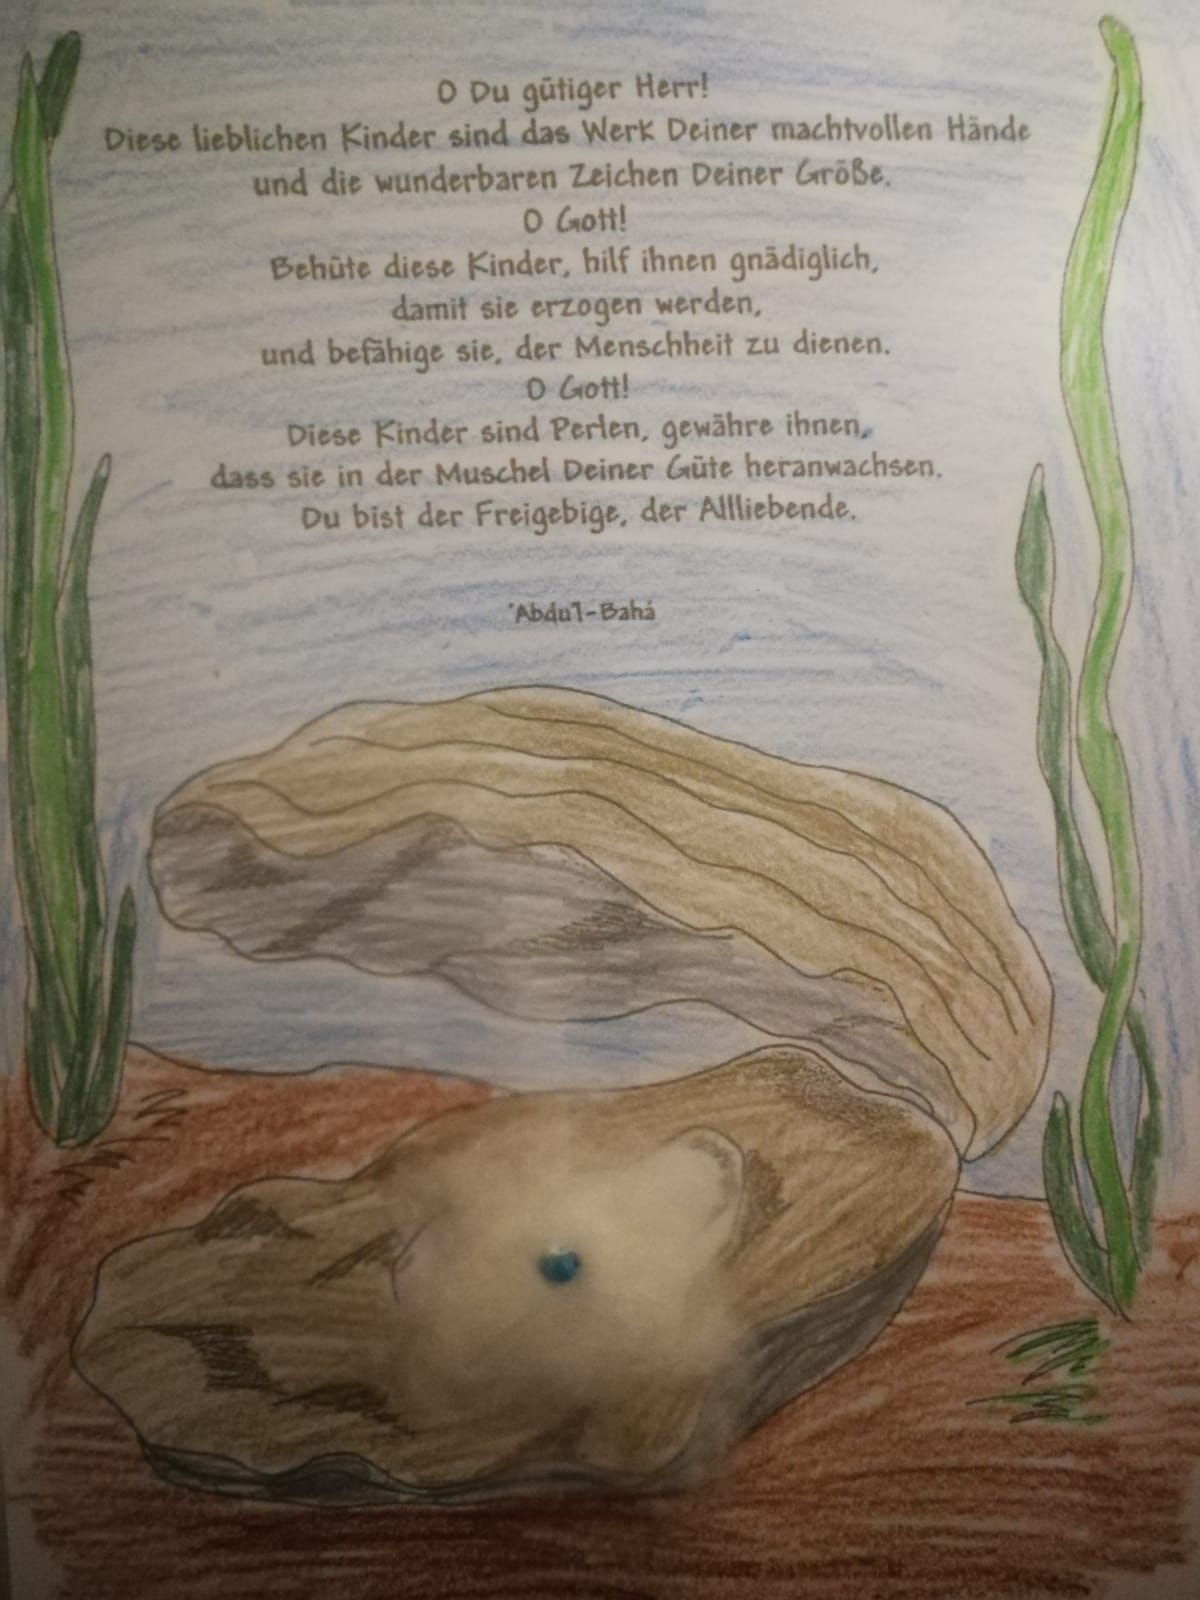 O Du gütiger Herr!
Diese lieblichen Kinder sind das Werk Deiner machtvollen Hände
und die wunderbaren Zeichen Deiner Größe.
O Gott!
Behüte diese Kinder, hilf ihnen gnädiglich,
damit sie erzogen werden,
und befähige sie, der Menschheit zu dienen.
O Gott!
Diese Kinder sind Perlen, gewähre ihnen,
dass sie in der Muschel Deiner Güte heranwachsen.
Du bist der Freigebige, der Allliebende.
‘Abdu’l-Bahá